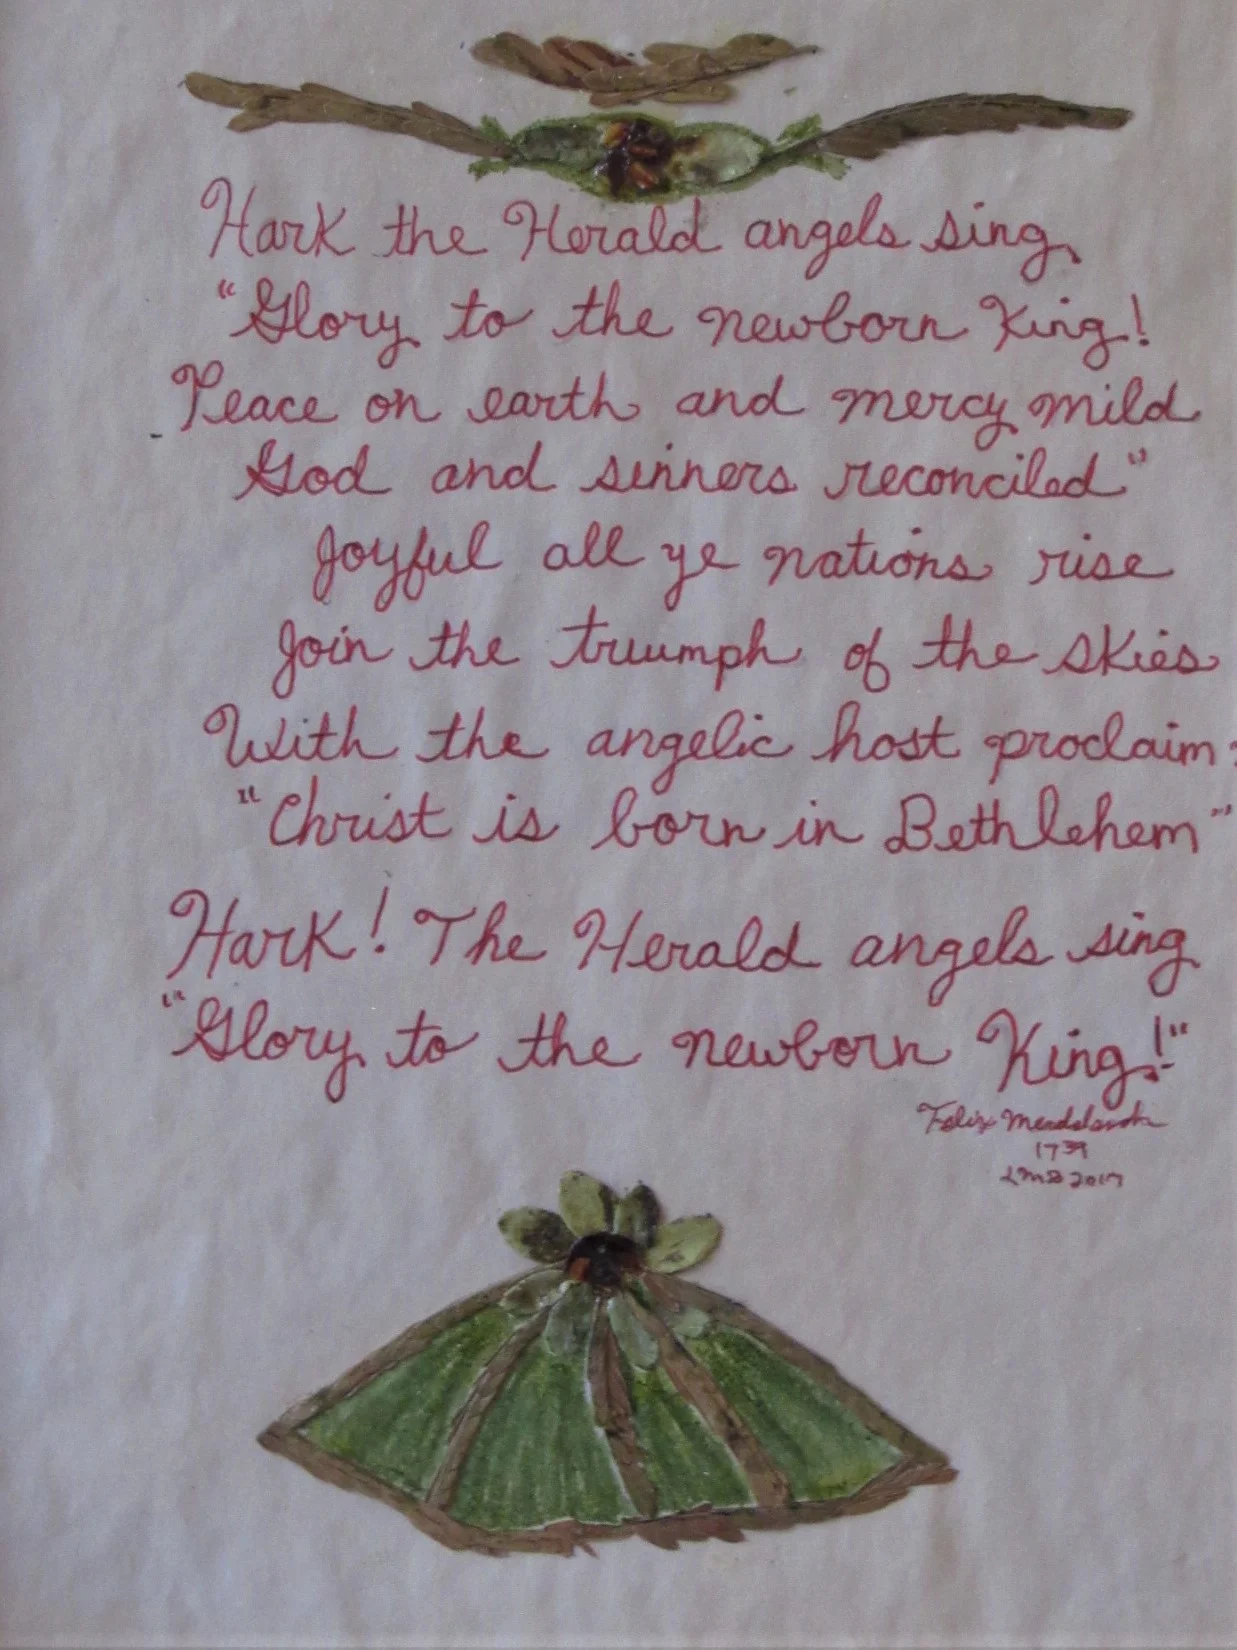 Hark the Herald angels sing
"Glory to the newborn King!
Peace on earth and mercy mild
God and sinners reconciled"
Joyful all ye nations rise
Join the truumph of the skies
With the angelic host proclaim:
"Christ is born in Bethlehem"
Hark! The Herald angels sing
"Glory to the newborn King!"
Felix Mendelssohn
1739
LMB 2017